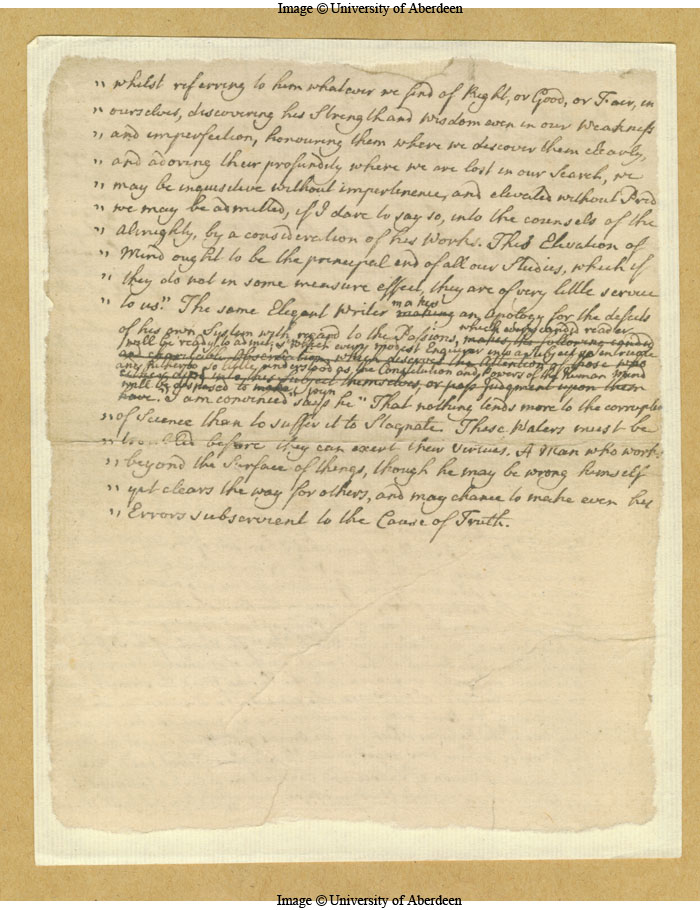 Image © University of Aberdeen
" whilst referring to him whatever we find of Right, or Good, or Fair, in
" ourselves, discovering his Strength and Wisdom even in our Weakness
" and imperfection, honouring them where we discover them clearly,
" and adoring their profundity where we are lost in our Search, we
" may be inquisitive without impertinence, and elevated without Prid
" we may be admitted, if I dare to say so, into the counsels of the
" Almighty, by a consideration of his Works. This Elevation of
" Mind ought to be the principal end of all our Studies, which if
" they do not in some measure effect, they are of very little service
" to us." The same Elegant Writer making makes an Apology for the defects
of his own System with regard to the Passions, makes the following candid which every candid reader
will be ready to admit, & which every modest Enquirer into a Subject so intricate
and charitable Observation, which deserves the Attention of those who
and hitherto so little understood as the Constitution and Powers of the Human Mind
either into this subject themselves, or pass Judgment upon them
will be disposed to make upon
have. "I am convinced" says he "That nothing tends more to the corruption
" of Science than to suffer it to Stagnate. These Waters must be
" troubled before they can exert their Virtues. A Man who works
" beyond the Surface of things, though he may be wrong himself
" yet clears the way for others, and may chance to make even his
" Errors subservient to the Cause of Truth.
Image © University of Aberdeen